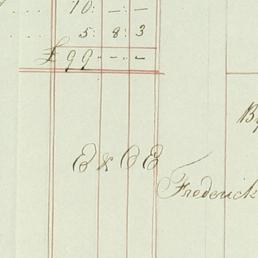 .... 70:—:—
.... 5:8:3
£99—.—
By
E & O E
Frederick